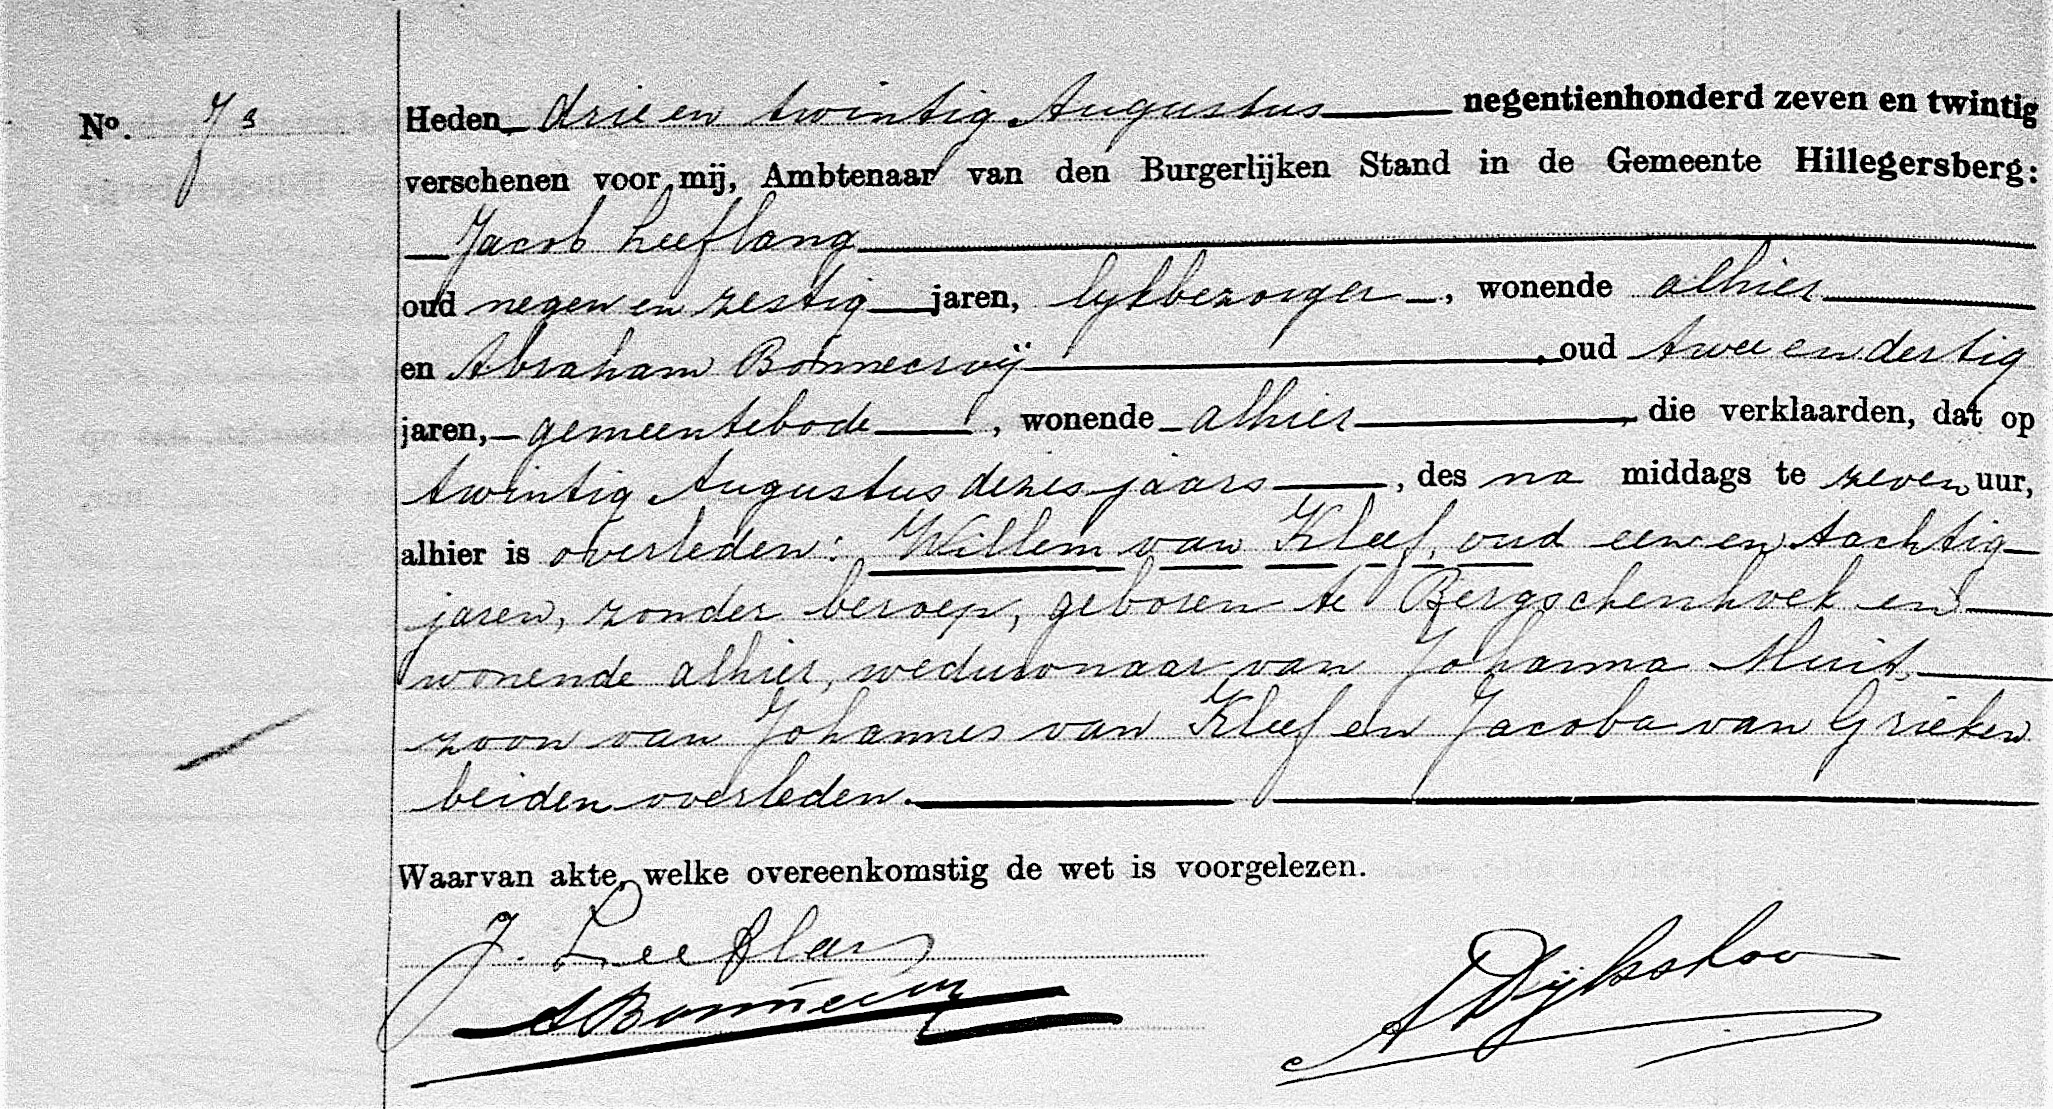 No. 73
Heden drie en twintig Augustus negentienhonderd zeven en twintig
verschenen voor mij, Ambtenaar van den Burgerlijken Stand in de Gemeente Hillegersberg:
Jacob Leeflang
oud negen en zestig jaren, lijkbezorger, wonende alhier
en Abraham Bonneervij, oud twee en dertig
jaren, gemeentebode, wonende alhier, die verklaarden, dat op
twintig Augustus dezes jaars, des na middags te zeven uur,
alhier is overleden: Willem van Kleef, oud een en tachtig
jaren, zonder beroep, geboren te Bergschenhoek en
wonende alhier, weduwnaar van Johanna Muit,
zoon van Johannes van Kleef en Jacoba van Grieken
beiden overleden.
Waarvan akte, welke overeenkomstig de wet is voorgelezen.
J. Leeflang
A Dijkshoo